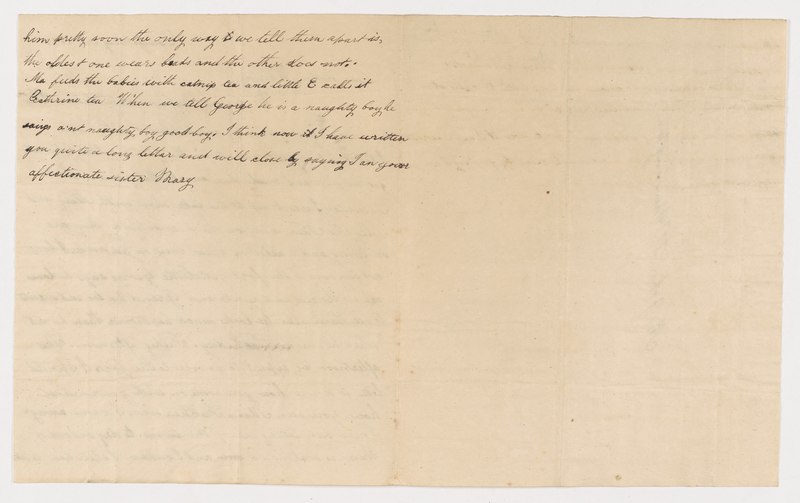 him pretty soon the only way & we tell them apart is,
the oldest one wears beads and the other does not.
Ma feeds the babies with catnip tea and little E calls it
Cathrine tea When we tell George he is a naughty boy he
says aint naughty boy good boy. I think now it I have written
you quite a long letter and will close by saying I am your
affectionate sister